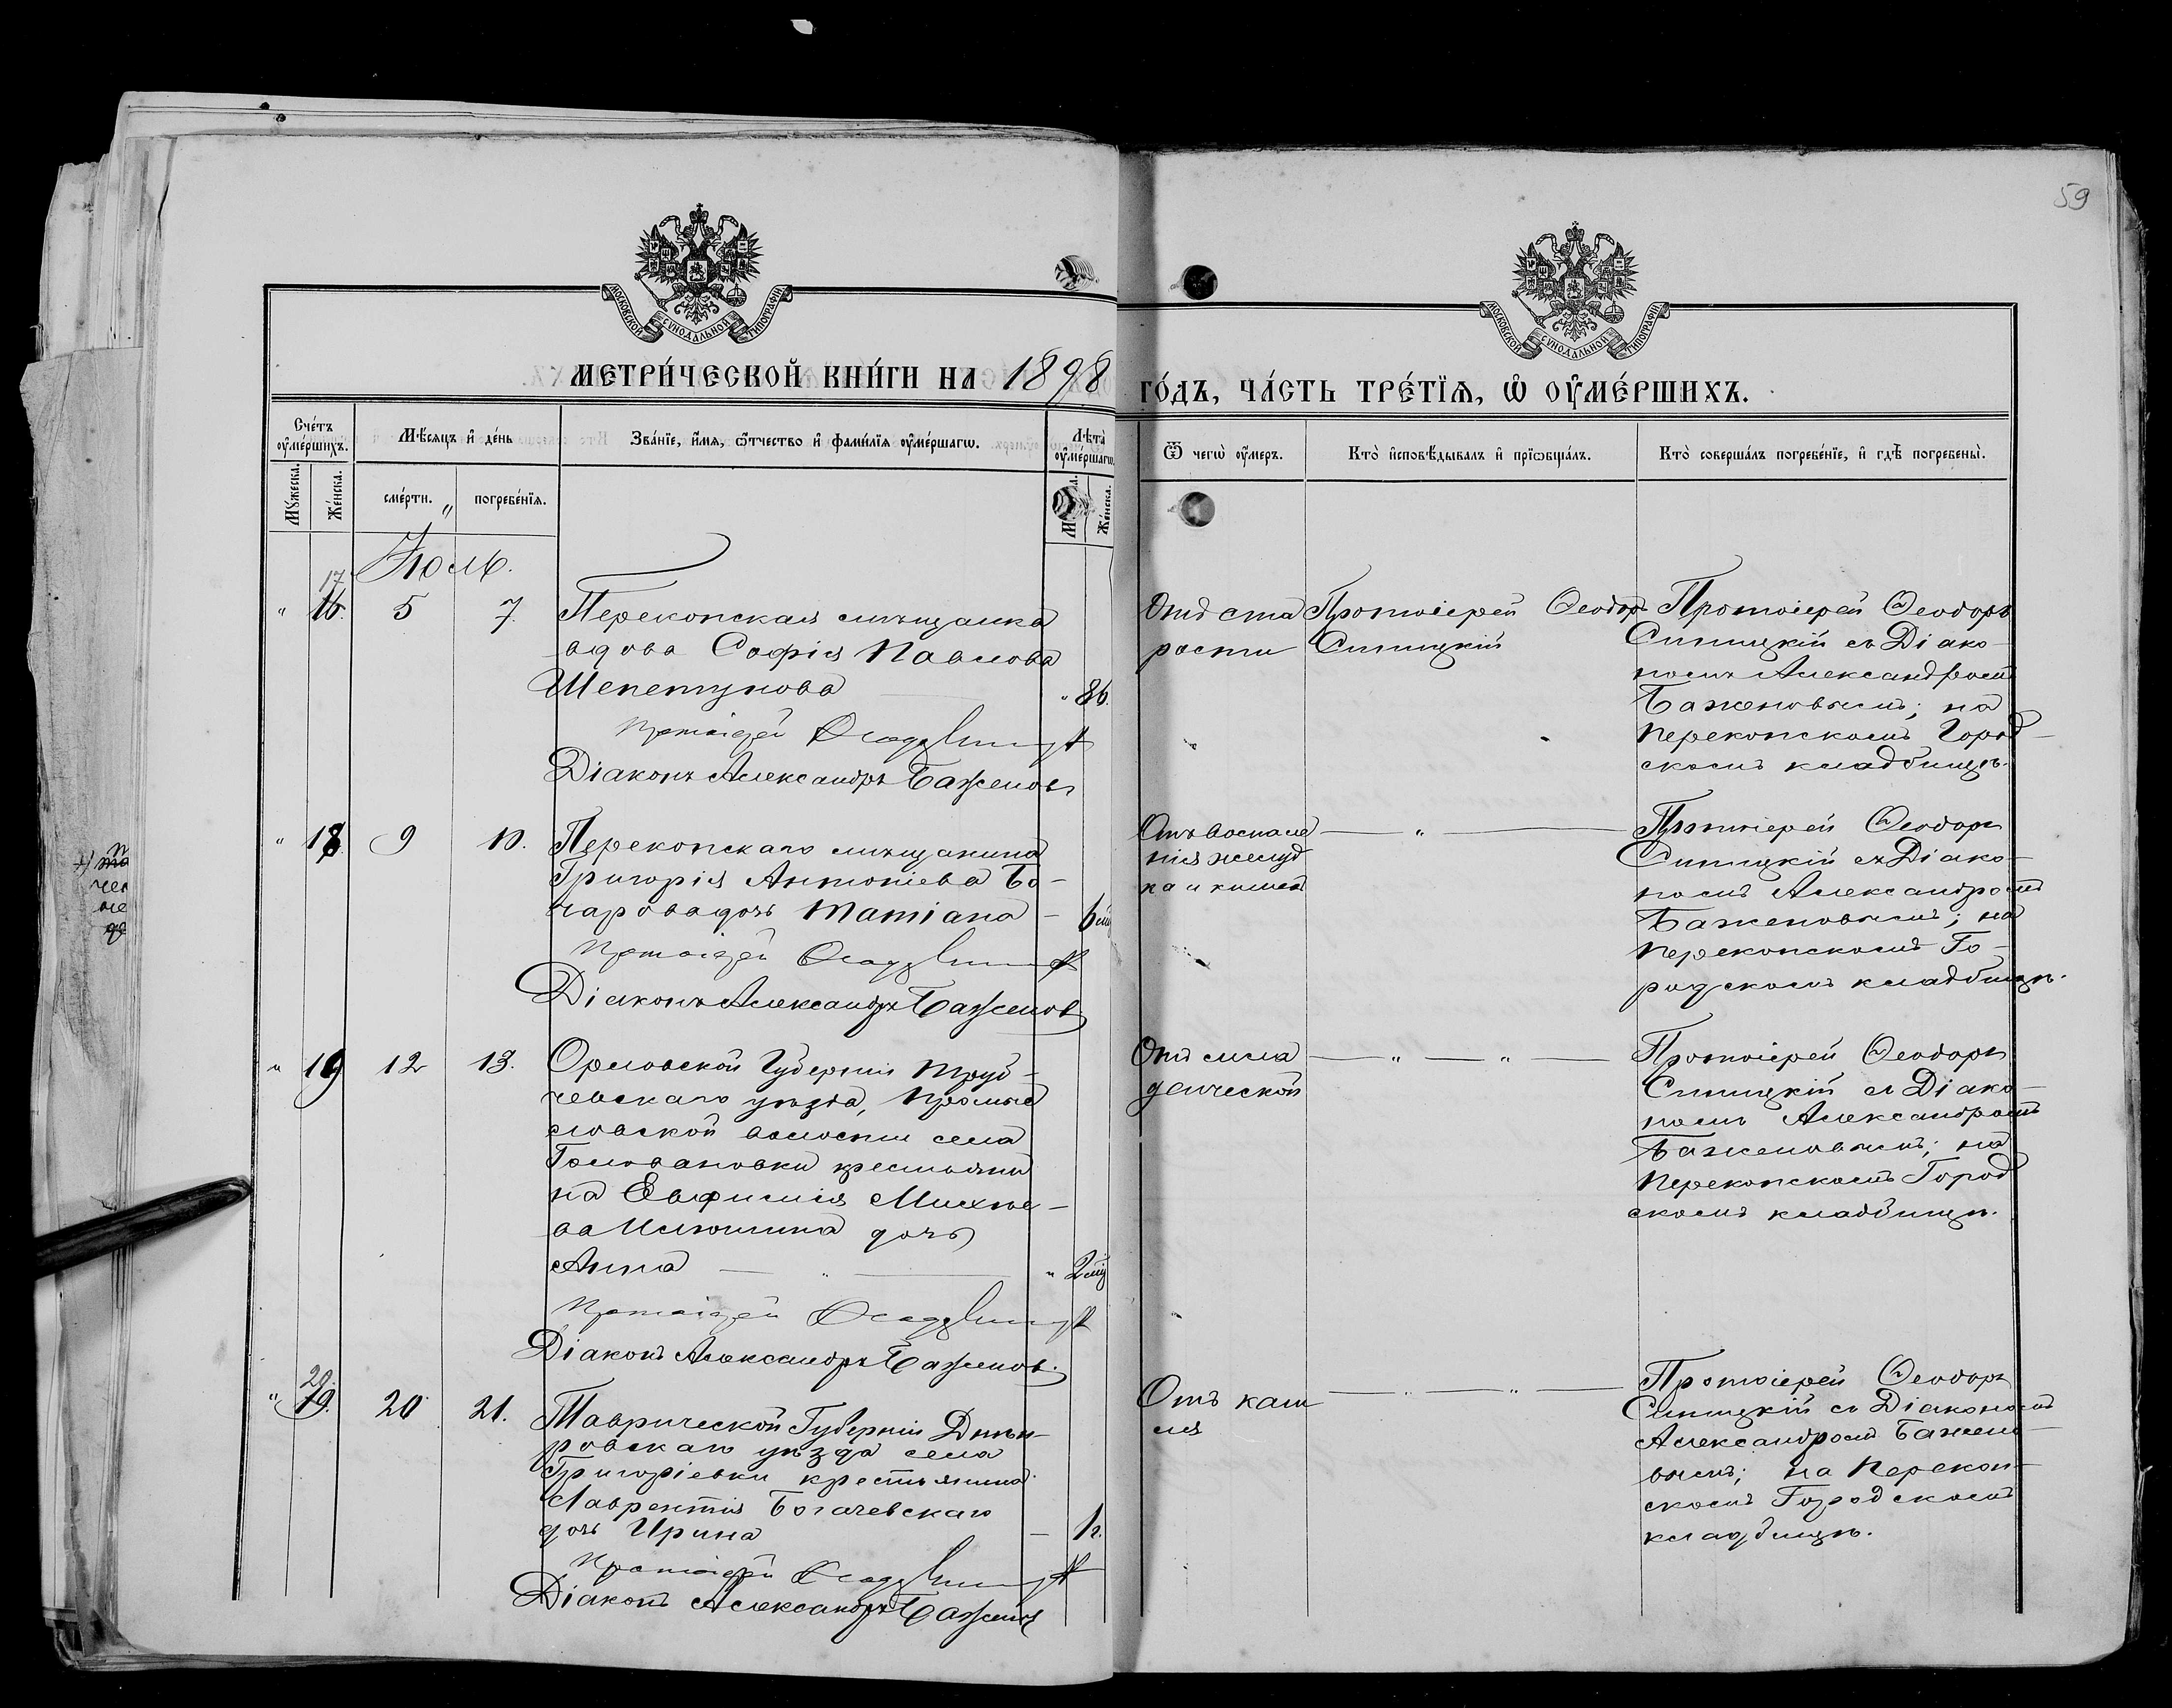 59
МОСКОВСКОЙ СУНОДАЛЬНОЙ ТИПОГРАФІИ.
МОСКОВСКОЙ СУНОДАЛЬНОЙ ТИПОГРАФІИ.
МЕТРИ́ЧЕСКОЙ КНИ́ГИ НА 1898
ГО́ДЪ, ЧА́СТЬ ТРЕ́ТЇѦ, Ѡ ОУ҆МЕ́РШИХЪ.
Сче́тъ оу҆ме́ршихъ.
Мꙋ́жеска.
Же́нска.
Мѣ́сяцъ и҆ де́нь
сме́рти.
погребе́нїѧ.
Зва́нїе, и҆́мѧ, ѻ҆́тчество и҆ фами́лїѧ оу҆ме́ршагѡ.
Лѣ́та оу҆ме́ршагѡ.
Же́нска.
Ѿ чегѡ̀ оу҆́меръ.
Кто̀ и҆сповѣ́дывалъ и҆ прїѡбща́лъ.
Кто̀ соверша́лъ погребе́нїе, и҆ гдѣ̀ погребены̀.
Іюль.
17
" 16. 5 7.
Перекопская мѣщанка
вдова Софія Павлова
Шепетунова " 86.
Протоіерей
Діаконъ Александръ Баженовъ
Отъ ста
рости
Протоіерей Ѳеодоръ
Синицкій
Протоіерей Ѳеодоръ
Синицкій съ Діако-
номъ Александромъ
Баженовымъ; на
Перекопскомъ Город-
скомъ кладбищѣ.
" 18 9 10.
Перекопскаго мѣщанина
Григорія Антоніева Бо-
чарова дочь Татіана - 6 мѣ
Протоіерей
Діаконъ Александръ Баженовъ
Отъ воспале
нія желуд
ка и кишекъ
— " —
Протоіерей Ѳеодоръ
Синицкій съ Діако-
номъ Александромъ
Баженовымъ; на
Перекопскомъ Го-
родскомъ кладбищѣ.
" 19 12 13.
Орловской Губерніи Труб-
чевскаго уѣзда,
словской волости села
Головановки крестьянин
на Евфимія Михѣе-
ва дочь
Анна — " — " 2 мѣ
Протоіерей
Діаконъ Александръ Баженовъ.
— " — " —
Протоіерей Ѳеодоръ
Синицкій съ Діако-
номъ Александромъ
Баженовымъ; на
Перекопскомъ Город
скомъ кладбищѣ.
20.
" 19. 20 21.
Таврической Губерніи Днѣп-
ровскаго уѣзда села
Григоріевки крестьянина
Лаврентія Богачевскаго
дочь Ирина — 1 г.
Протоіерей
Діаконъ Александръ Баженовъ
Отъ каш
ля
— " — " —
Протоіерей Ѳеодоръ
Синицкій съ Діакономъ
Александромъ Бажено-
вымъ; на Перекоп-
скомъ Городскомъ
кладбищѣ.